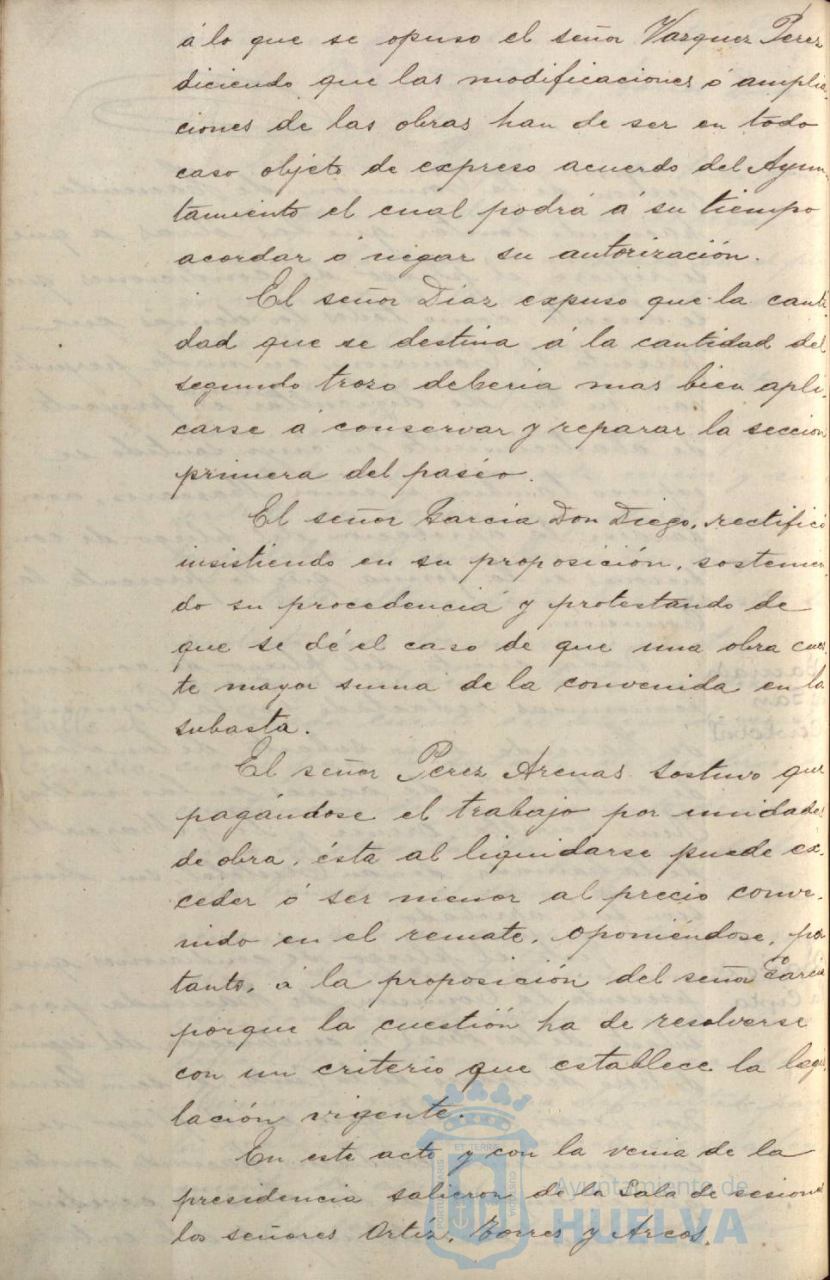 á lo que se opuso el señor Vazquez Perez
diciendo que las modificaciones ó amplia-
ciones de las obras han de ser en todo
caso objeto de expreso acuerdo del Ayun-
tamiento el cual podrá á su tiempo
acordar ó negar su autorización.
El señor Diaz expuso que la canti-
dad que se destina á la cantidad del
segundo trozo deberia mas bien apli-
carse á conservar y reparar la sección
primera del paseo.
El señor Garcia Don Diego, rectificó
insistiendo en su proposición, sostenien-
do su procedencia y protestando de
que se dé el caso de que una obra cues-
te mayor suma de la convenida en la
subasta.
El señor Perez Arenas sostuvo que
pagándose el trabajo por unidades
de obra, ésta al liquidarse puede ex-
ceder ó ser menor al precio conve-
nido en el remate, oponiéndose, por
tanto, á la proposición del señor Garcia
porque la cuestión ha de resolverse
con un criterio que establece la legis-
lación vigente.
En este acto y con la venia de la
presidencia salieron de la Sala de sesiones
los señores Ortiz, Torres y Arcos.
Ayuntamiento de
HUELVA